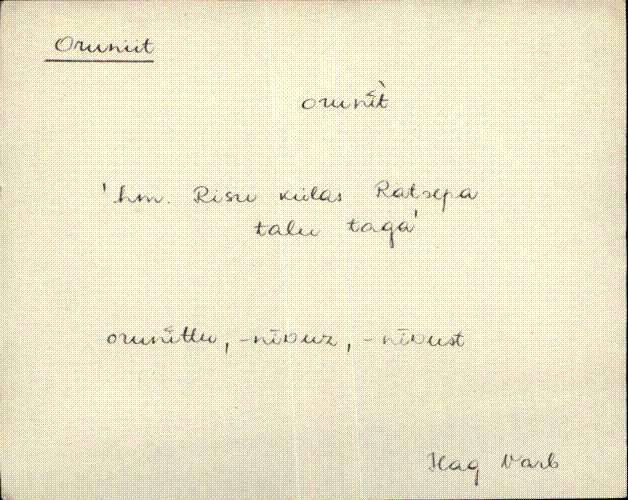 Oruniit
orunì̄t
'hm. Risu külas Ratsepa
talu taga'
orunī̀ttu, -nīᴅuz, -nīᴅust
Hag Varb